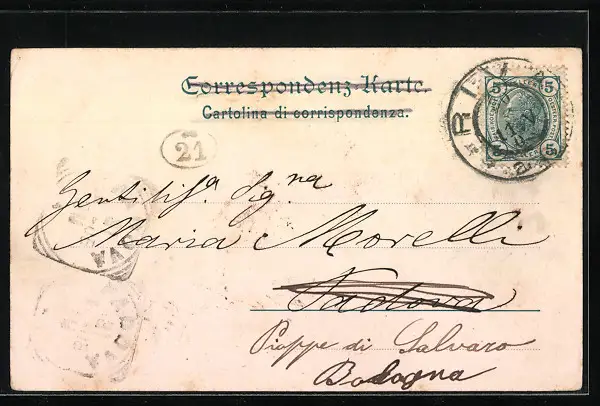 Correspondenz-Karte.
Cartolina di corrispondenza.
RIVA
5 5
5 5
21
Gentilisª. Sigⁿª
Maria Morelli
Padova
Pioppe di Salvaro
Bologna